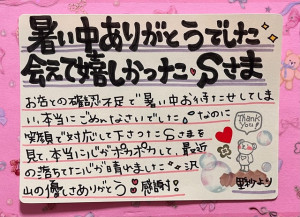 暑い中ありがとうでした
会えて嬉しかった Sさま
お店との確認不足で暑い中お待たせしてしま
い、本当にごめんなさいでした。なのに
笑顔で対応して下さったSさまを
見て、本当に心がポカポカして、最近
の落ちてた心が晴れました 沢
山の優しさありがとう!感謝!
Thank
You!
より